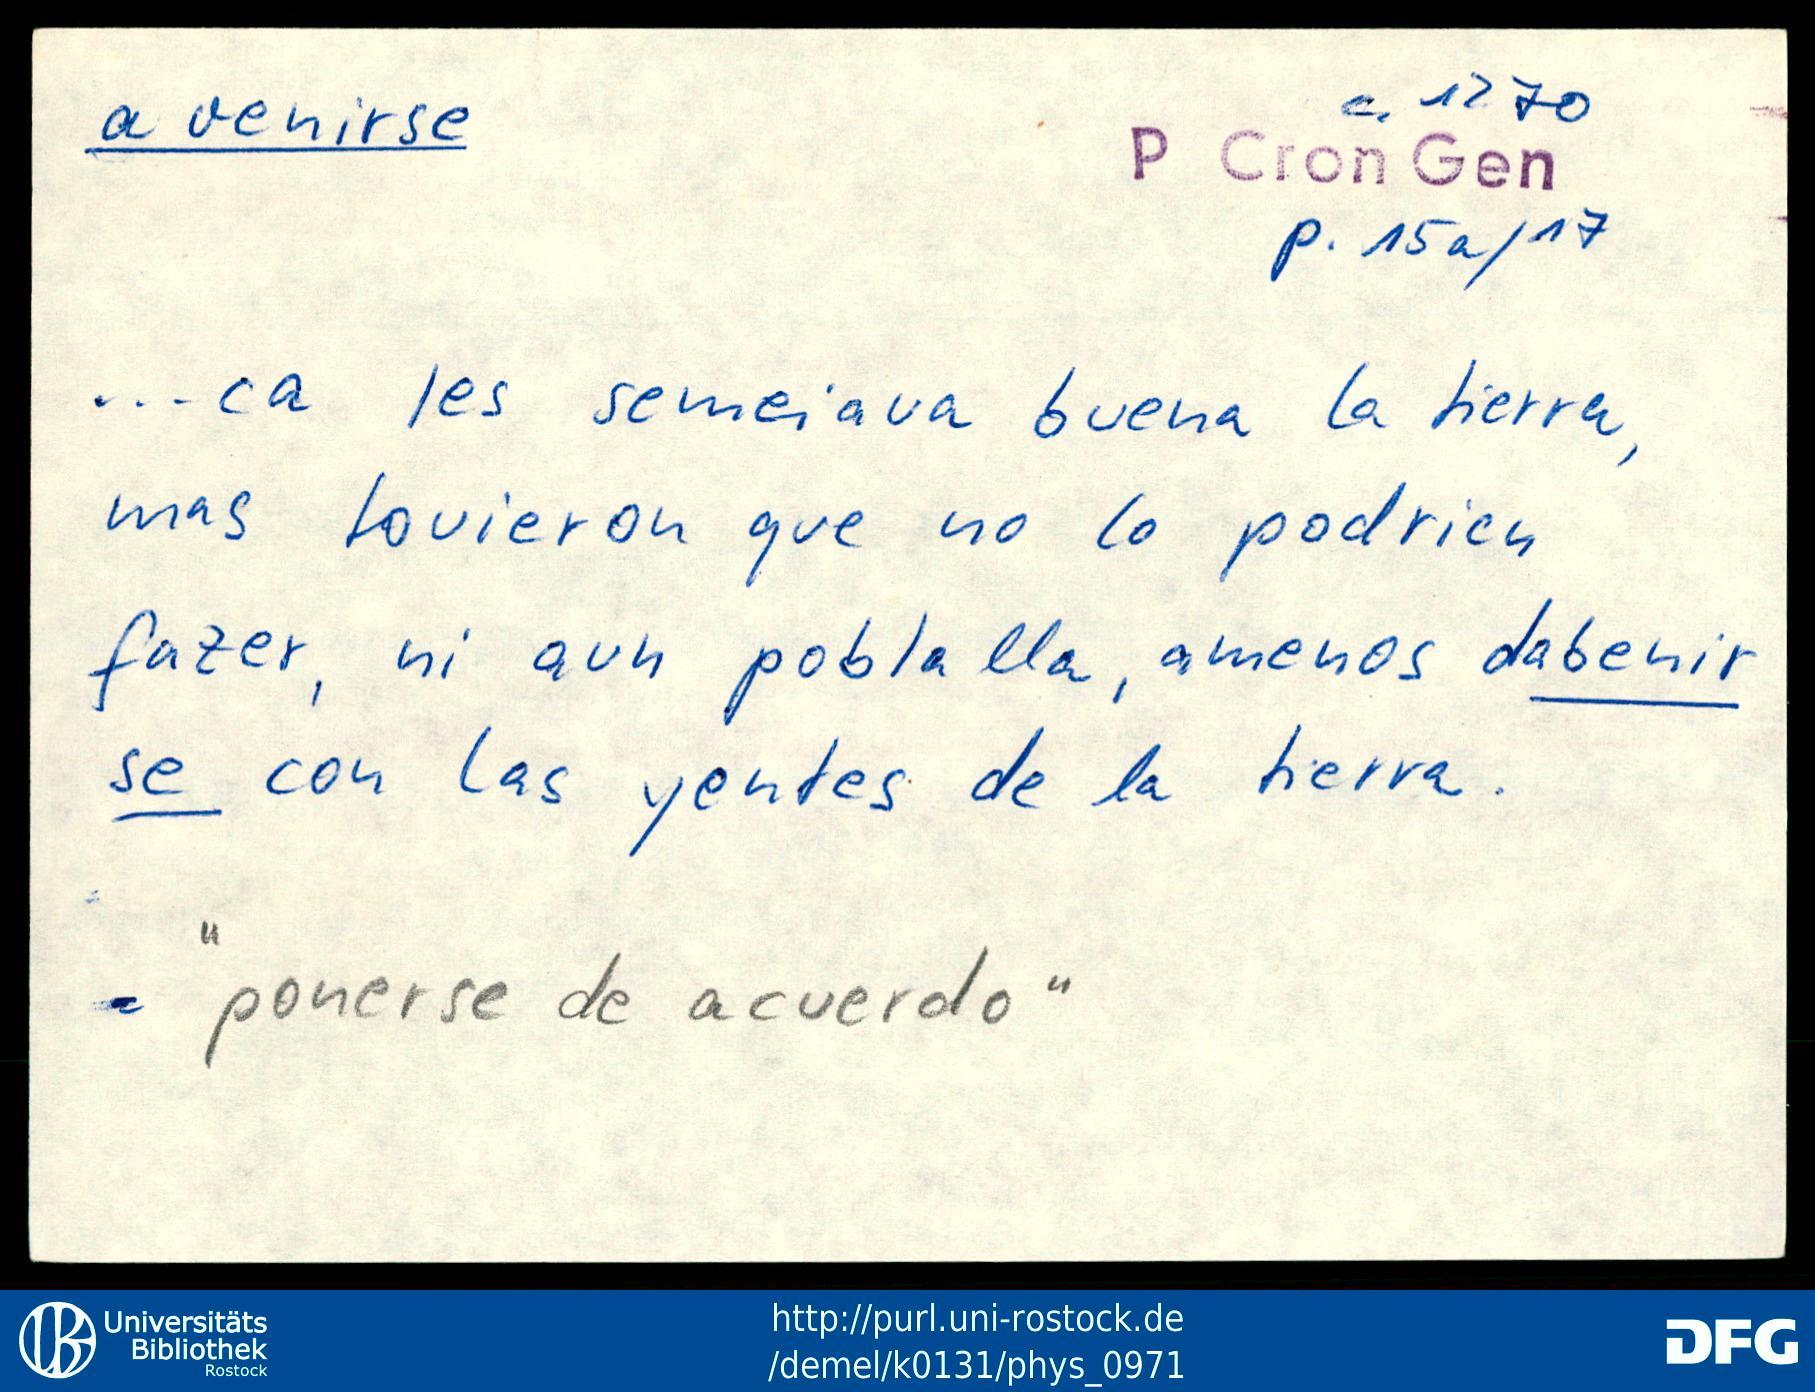 a venirse
c. 1270
P Cron Gen
p. 15a/17
...ca les semeiava buena la tierra,
mas tovieron que no lo podrien
fazer, ni aun poblalla, amenos dabenir
se con las yentes de la tierra.
= "ponerse de acuerdo"
Universitäts
Bibliothek
Rostock
http://purl.uni-rostock.de
/demel/k0131/phys_0971
DFG